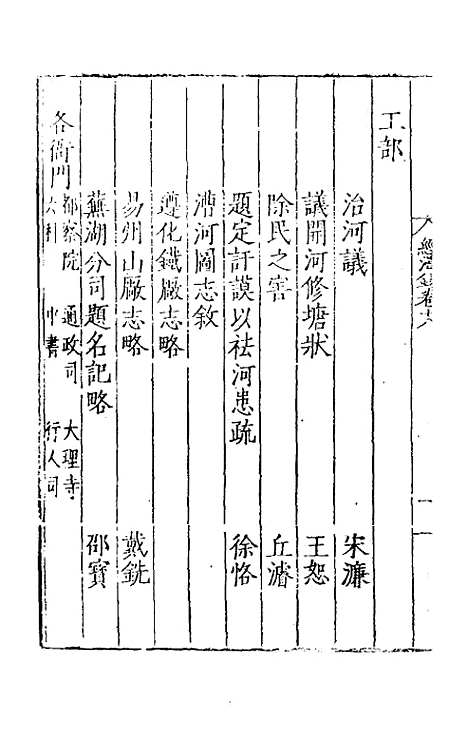 經濟錄卷十八
工部
治河議 宋濂
議開河修塘狀 王恕
除民之害 丘濬
題定訏謨以袪河患疏 徐恪
漕河圖志敘
遵化鐵廠志略
易州山廠志略 戴銑
蕪湖分司題名記略 邵寶
各衙門 都察院 通政司 大理寺
六科 中書 行人司